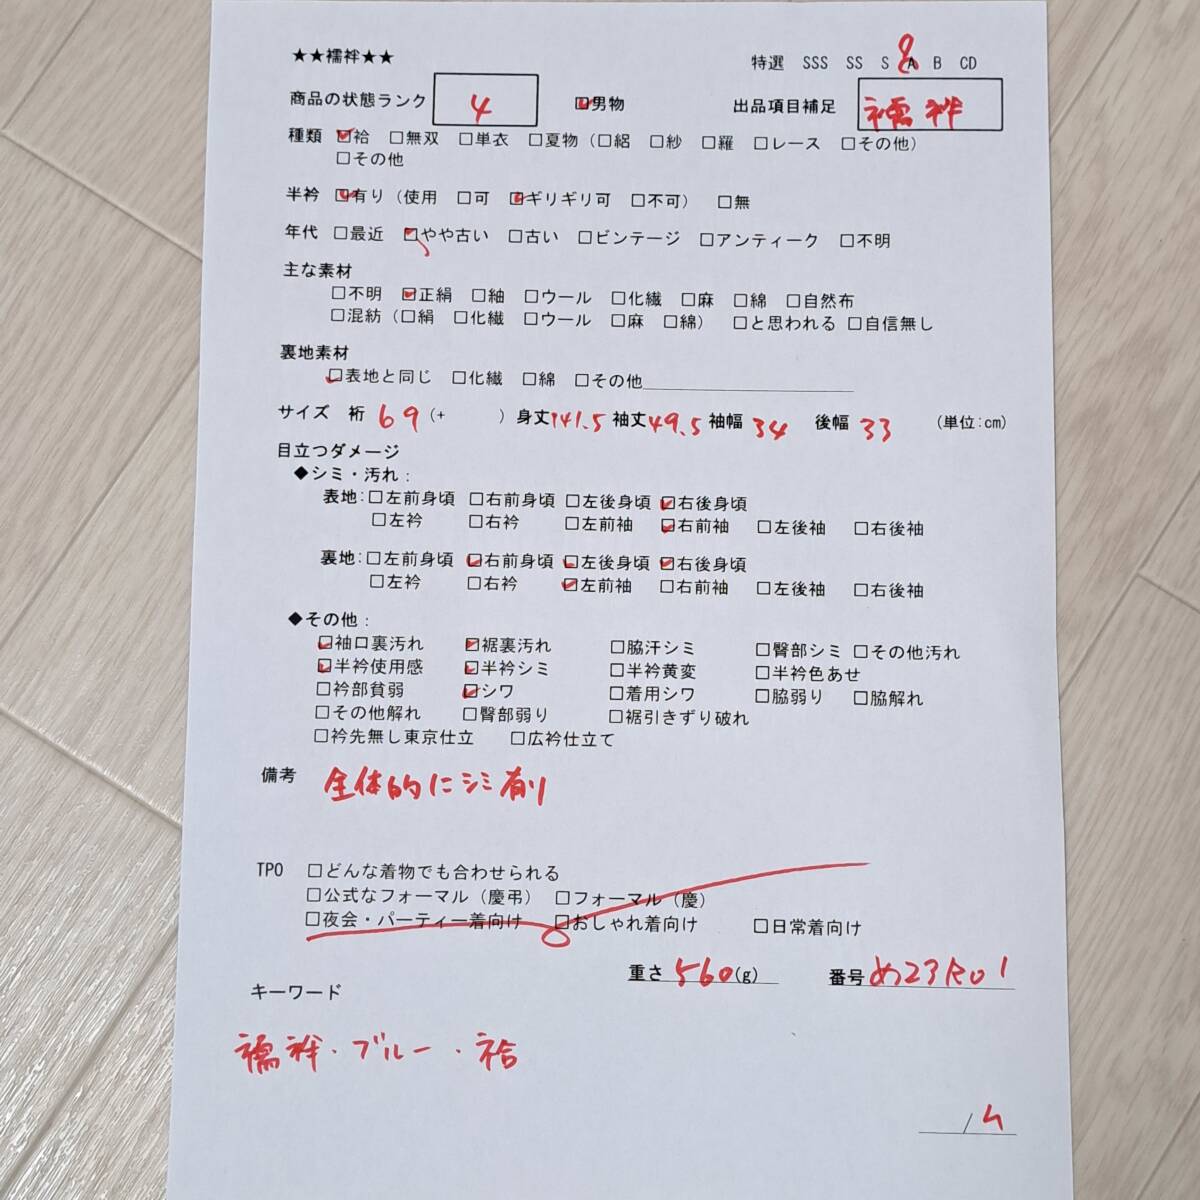 ★★襦袢★★
特選 SSS SS S A B CD
商品の状態ランク 4 ☑男物 出品項目補足 襦袢
種類 ☑袷 □無双 □単衣 □夏物（□絽 □紗 □羅 □レース □その他）
□その他
半衿 ☑有り（使用 □可 ☑ギリギリ可 □不可） □無
年代 □最近 ☑やや古い □古い □ビンテージ □アンティーク □不明
主な素材
□不明 ☑正絹 □紬 □ウール □化繊 □麻 □綿 □自然布
□混紡（□絹 □化繊 □ウール □麻 □綿） □と思われる □自信無し
裏地素材
☑表地と同じ □化繊 □綿 □その他
サイズ 裄 69 (+ ) 身丈141.5 袖丈49.5 袖幅 34 後幅 33 (単位:cm)
目立つダメージ
◆シミ・汚れ：
表地:□左前身頃 □右前身頃 □左後身頃 ☑右後身頃
□左衿 □右衿 □左前袖 ☑右前袖 □左後袖 □右後袖
裏地:□左前身頃 ☑右前身頃 ☑左後身頃 ☑右後身頃
□左衿 □右衿 ☑左前袖 □右前袖 □左後袖 □右後袖
◆その他：
☑袖口裏汚れ ☑裾裏汚れ □脇汗シミ □臀部シミ □その他汚れ
☑半衿使用感 ☑半衿シミ □半衿黄変 □半衿色あせ
□衿部貧弱 ☑シワ □着用シワ □脇弱り □脇解れ
□その他解れ □臀部弱り □裾引きずり破れ
□衿先無し東京仕立 □広衿仕立て
備考 全体的にシミ有り
TPO □どんな着物でも合わせられる
□公式なフォーマル（慶弔） □フォーマル（慶）
□夜会・パーティー着向け □おしゃれ着向け □日常着向け
重さ 560(g) 番号 め23R01
キーワード
襦袢・ブルー・袷
/